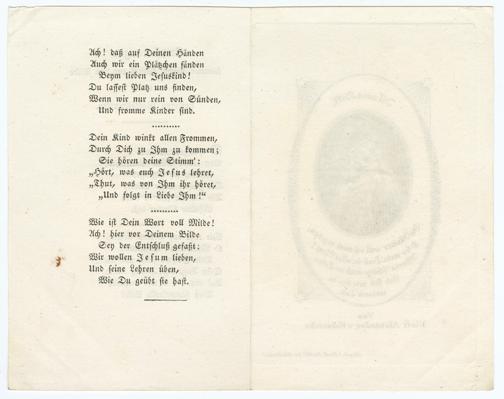 Ach! daß auf Deinen Händen
Auch wir ein Plätzchen fänden
Beym lieben Jesuskind!
Du lassest Platz uns finden,
Wenn wir nur rein von Sünden,
Und fromme Kinder sind.
Dein Kind winkt allen Frommen,
Durch Dich zu Ihm zu kommen;
Sie hören deine Stimm':
„Hört, was euch Jesus lehret,
„Thut, was von Ihm ihr höret,
„Und folgt in Liebe Ihm!“
Wie ist Dein Wort voll Milde!
Ach! hier vor Deinem Bilde
Sey der Entschluß gefaßt:
Wir wollen Jesum lieben,
Und seine Lehren üben,
Wie Du geübt sie hast.